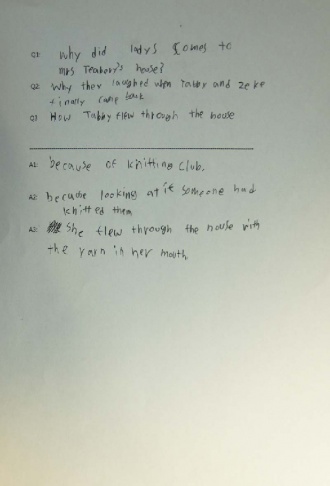 Q1: why did ladys comes to
mrs Teaberry's house?
Q2: why they laughed when Tabby and Zeke
finally came back
Q3 How Tabby flew through the house
A1: because of knitting club.
A2: because looking at it someone had
knitted them
A3: She flew through the house with
the yarn in her mouth